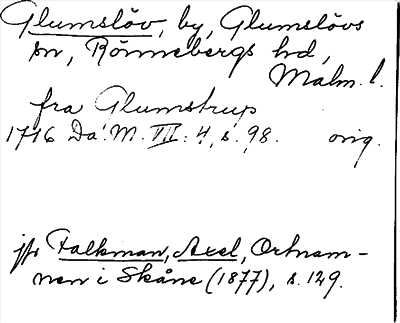 Glumslöv, by, Glumslövs
sn, Rönnebergs hd,
Malm. l.
fra Glumstrup
1716 Da. M. VII: 4, s. 98. orig.
jfr Falkman, Axel, Ortnam-
nen i Skåne (1877), s. 129.